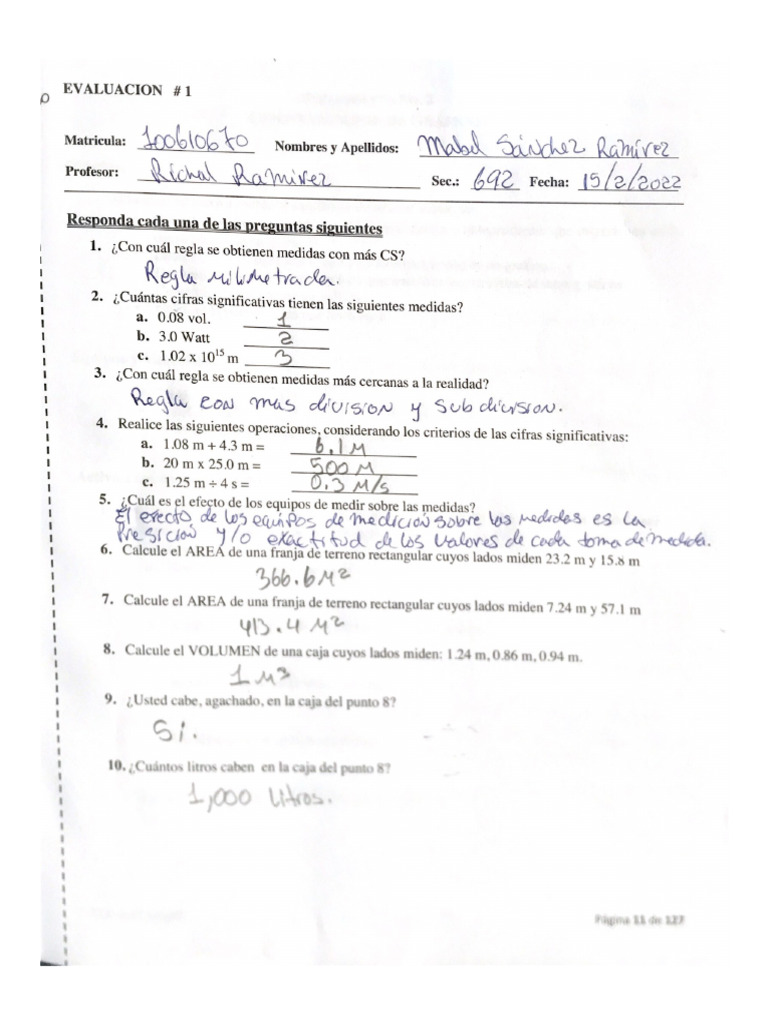 EVALUACION # 1
Matricula: 100610670 Nombres y Apellidos: Mabel Sánchez Ramírez
Profesor: Richal Ramirez Sec.: 692 Fecha: 15/2/2022
Responda cada una de las preguntas siguientes
1. ¿Con cuál regla se obtienen medidas con más CS?
Regla milimetrada.
2. ¿Cuántas cifras significativas tienen las siguientes medidas?
a. 0.08 vol. 1
b. 3.0 Watt 2
c. 1.02 x 10¹⁵ m 3
3. ¿Con cuál regla se obtienen medidas más cercanas a la realidad?
Regla con mas division y subdivision.
4. Realice las siguientes operaciones, considerando los criterios de las cifras significativas:
a. 1.08 m + 4.3 m = 6.1 M
b. 20 m x 25.0 m = 500 M
c. 1.25 m ÷ 4 s = 0.3 M/s
5. ¿Cuál es el efecto de los equipos de medir sobre las medidas?
El efecto de los equipos de medición sobre las medidas es la
presición y/o exactitud de los valores de cada toma de medida.
6. Calcule el AREA de una franja de terreno rectangular cuyos lados miden 23.2 m y 15.8 m
366.6 M²
7. Calcule el AREA de una franja de terreno rectangular cuyos lados miden 7.24 m y 57.1 m
413.4 M²
8. Calcule el VOLUMEN de una caja cuyos lados miden: 1.24 m, 0.86 m, 0.94 m.
1 M³
9. ¿Usted cabe, agachado, en la caja del punto 8?
Si.
10. ¿Cuántos litros caben en la caja del punto 8?
1,000 Litros.
Página 11 de 127